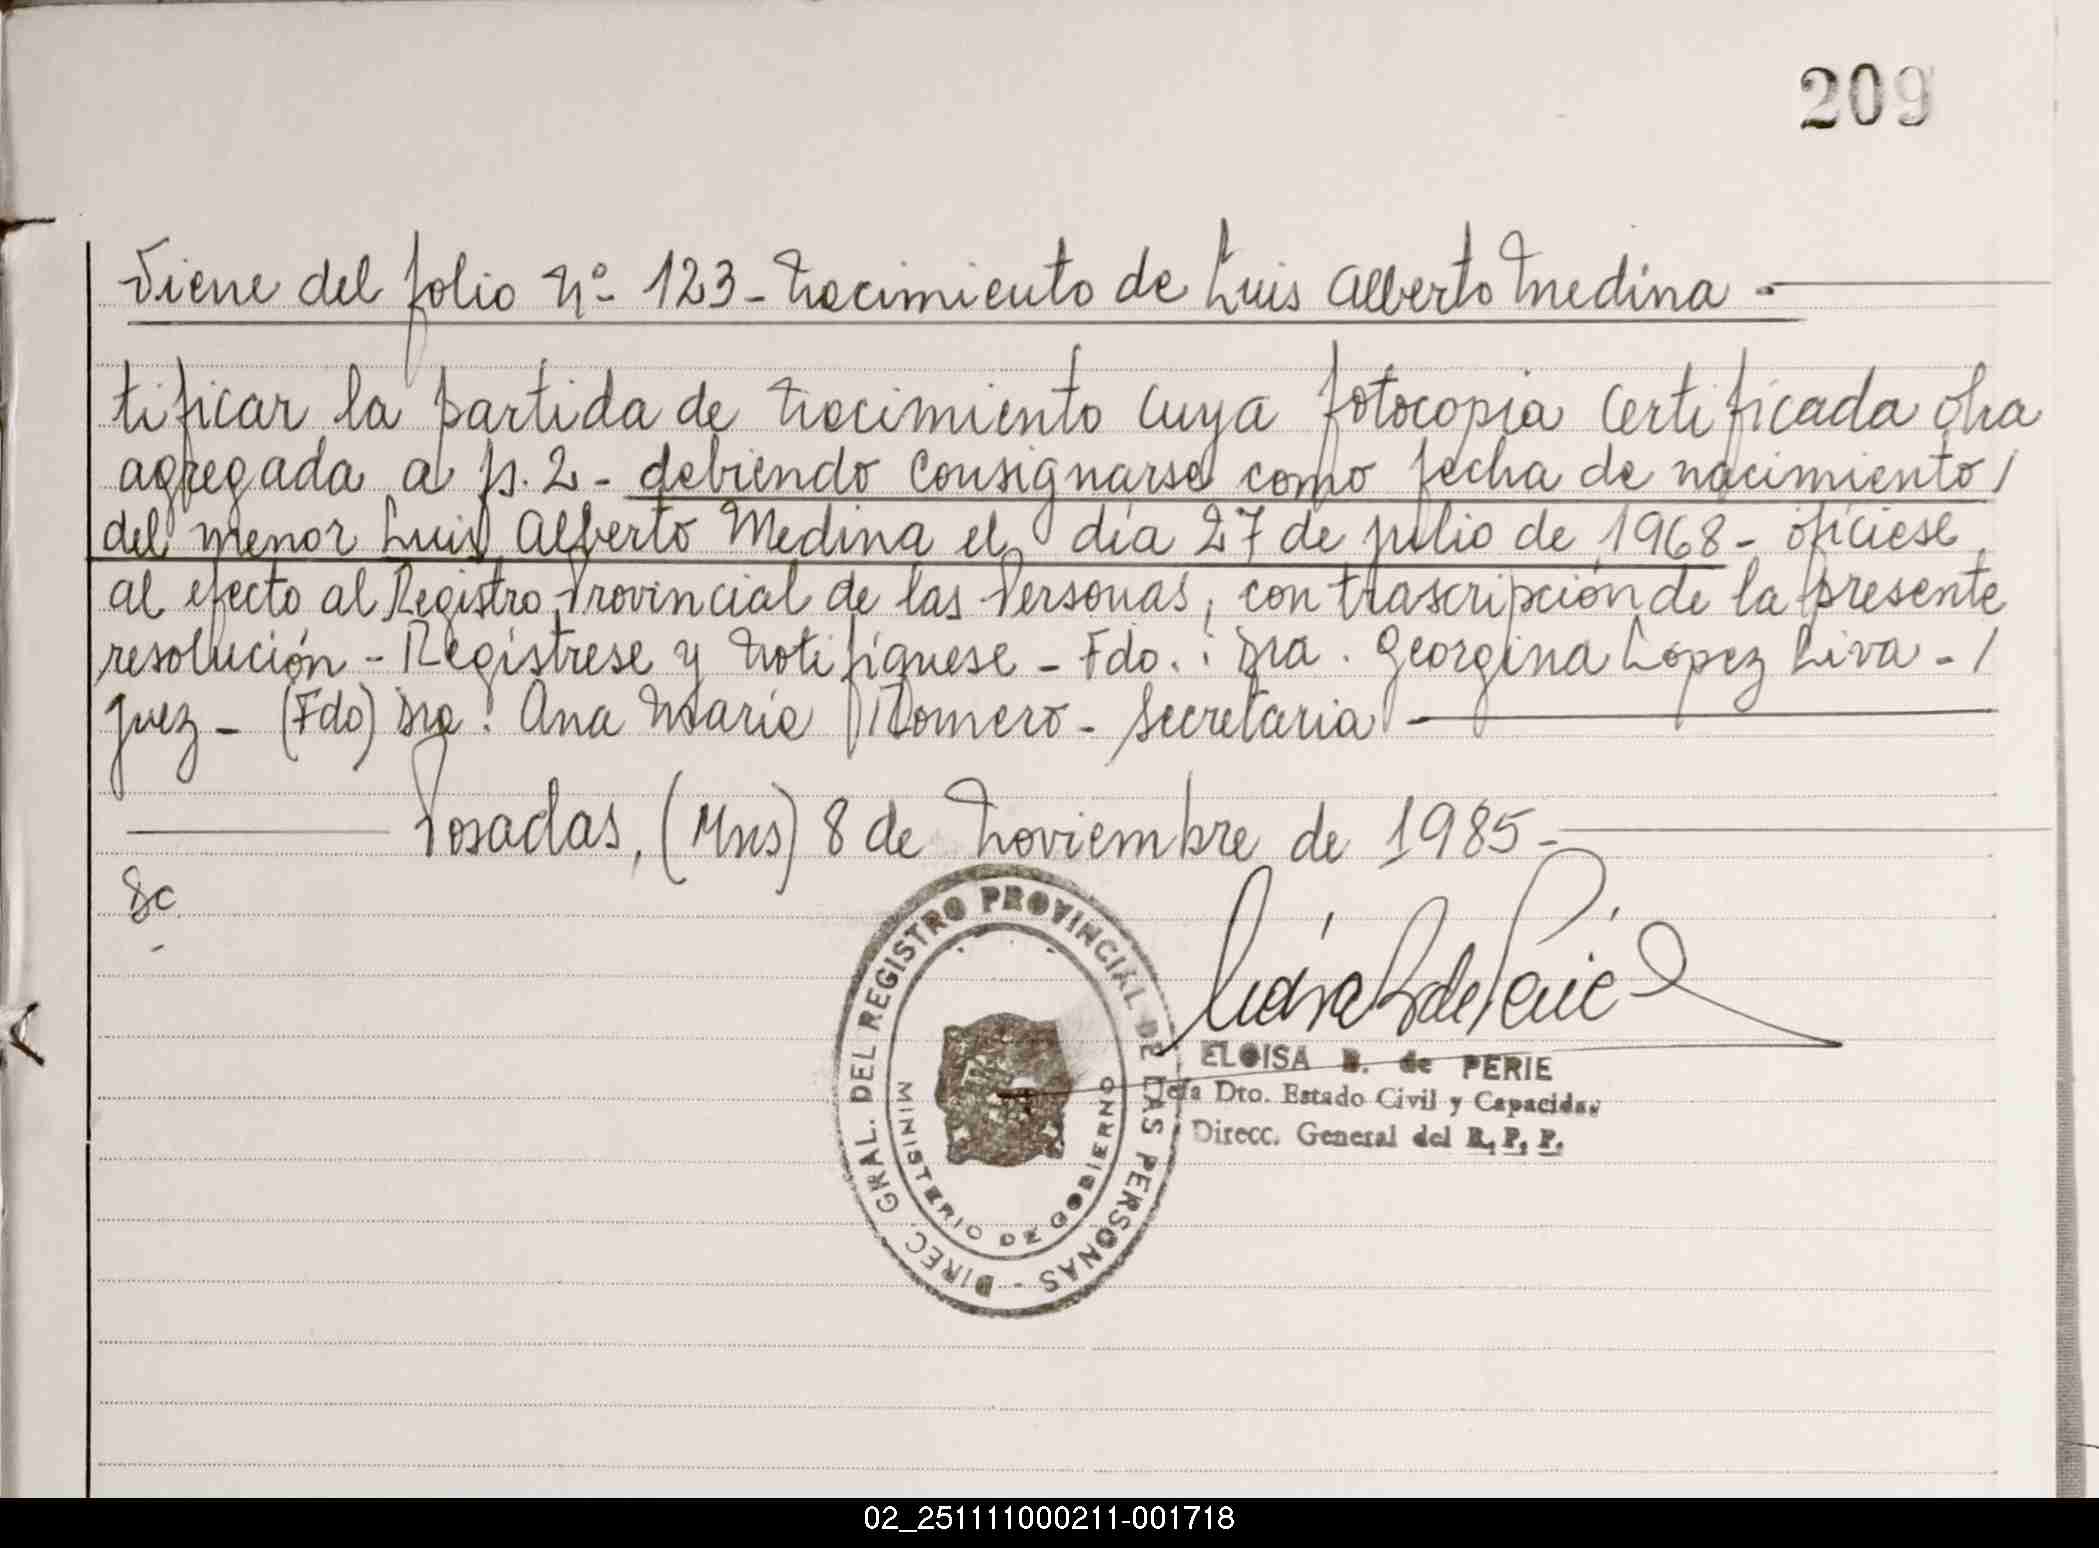 209
Viene del folio Nº 123 - Nacimiento de Luis Alberto Medina -
tificar la partida de Nacimiento cuya fotocopia certificada obra
agregada a p. 2 - debiendo consignarse como fecha de nacimiento /
del menor Luis Alberto Medina el día 27 de julio de 1968 - ofíciese
al efecto al Registro Provincial de las Personas, con trascripción de la presente
resolución - Regístrese y Notifíquese - Fdo. : Dra. Georgina López Liva - /
Juez - (Fdo) Dra. Ana María Romero - Secretaria -
Posadas, (Mns) 8 de Noviembre de 1985 -
DIREC. GRAL. DEL REGISTRO PROVINCIAL DE LAS PERSONAS -
MINISTERIO DE GOBIERNO
ELOISA B. de PERIE
Jefa Dto. Estado Civil y Capacidad
Direcc. General del R. P. P.
02_251111000211-001718